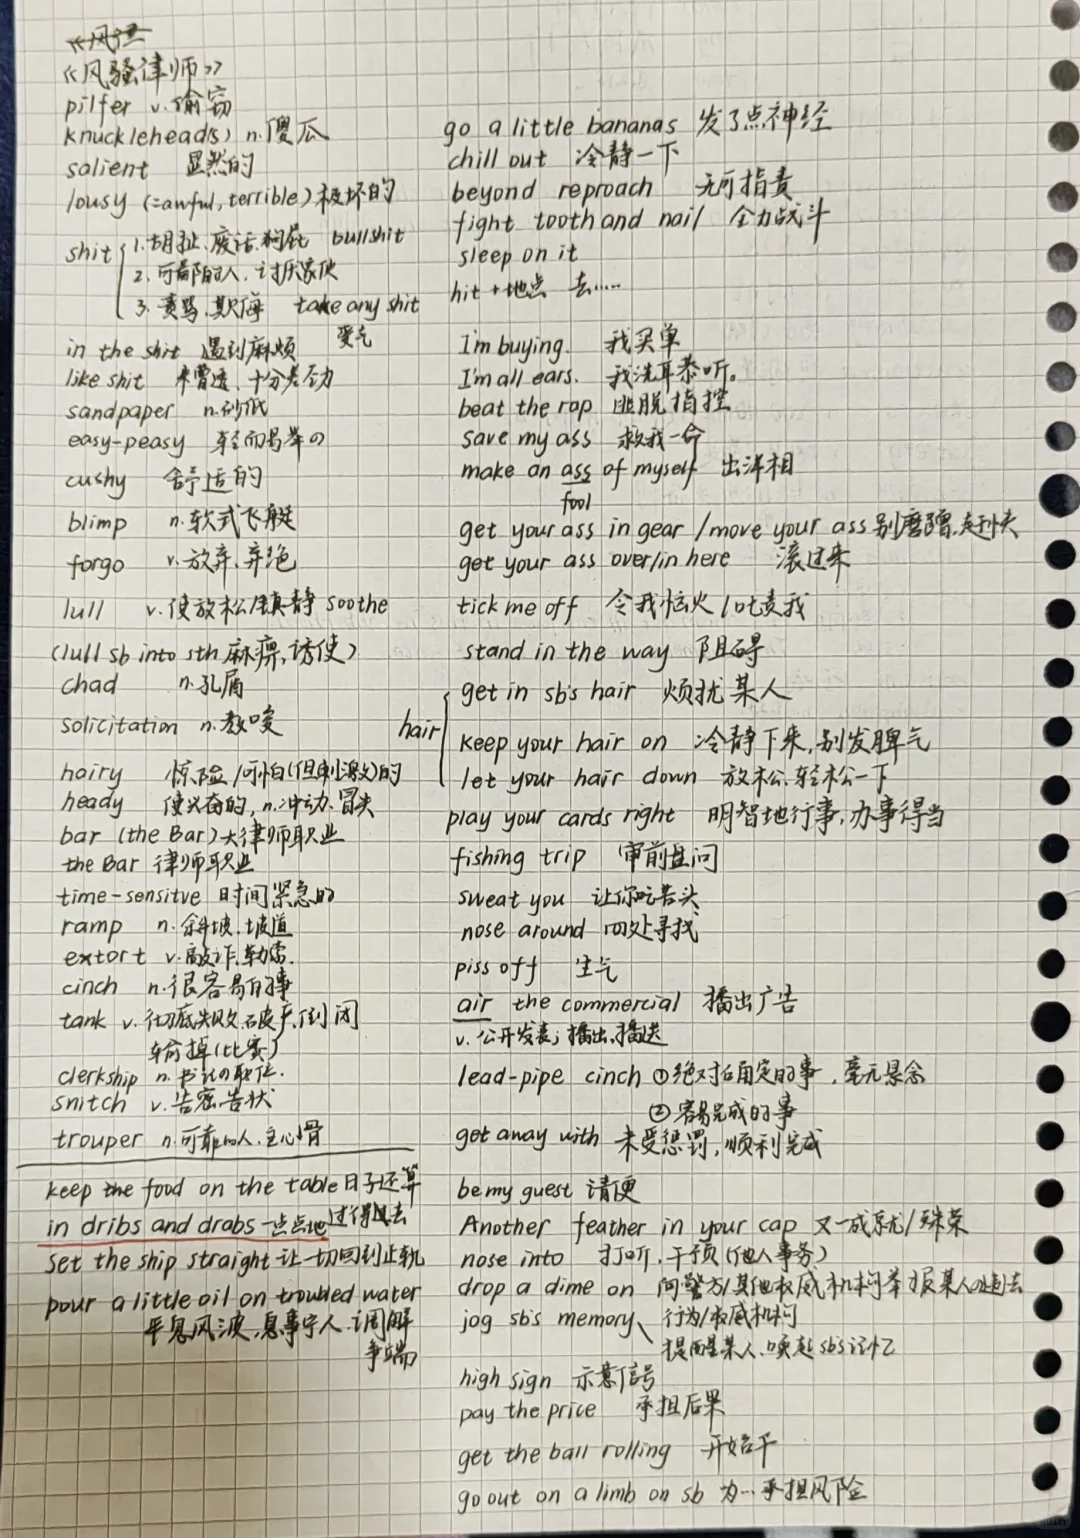 《风骚律师》
pilfer v.偷窃
knucklehead(s) n.傻瓜
salient 显然的
lousy (=awful, terrible) 极坏的
shit 1.胡扯、废话、狗屁 bullshit
2.可鄙的人、讨厌家伙
3.责骂、欺侮 take any shit
受气
in the shit 遇到麻烦
like shit 十分卖力
sandpaper n.砂纸
easy-peasy 轻而易举の
cushy 舒适的
blimp n.软式飞艇
forgo v.放弃、弃绝
lull v.使放松/镇静 soothe
(lull sb into sth 麻痹、诱使)
chad n.孔屑
solicitation n.教唆
hairy 惊险/可怕(但刺激)的
heady 使兴奋的, n.冲动、冒失
bar (the Bar) 大律师职业
the Bar 律师职业
time-sensitve 时间紧急的
ramp n.斜坡、坡道
extort v.敲诈、勒索.
cinch n.很容易的事
tank v.彻底失败、破产、倒闭
输掉(比赛)
clerkship n.书记の职位.
snitch v.告密、告状
trouper n.可靠的人、主心骨
keep the food on the table 日子还算
过得去
in dribs and drabs 一点点地
set the ship straight 让一切回到正轨
pour a little oil on troubled water
平息风波、息事宁人、调解
争端
go a little bananas 发了点神经
chill out 冷静一下
beyond reproach 无可指责
fight tooth and nail 全力战斗
sleep on it
hit+地点 去……
I'm buying. 我买单
I'm all ears. 我洗耳恭听。
beat the rap 逃脱指控
save my ass 救我一命
make an ass of myself 出洋相
fool
get your ass in gear / move your ass 别磨蹭、赶快
get your ass over/in here 滚过来
tick me off 令我恼火/叱责我
stand in the way 阻碍
hair get in sb's hair 烦扰某人
keep your hair on 冷静下来,别发脾气
let your hair down 放松、轻松一下
play your cards right 明智地行事,办事得当
fishing trip 审前盘问
sweat you 让你吃苦头
nose around 四处寻找
piss off 生气
air the commercial 播出广告
v.公开发表;播出、播送
lead-pipe cinch ①绝对确定的事,毫无悬念
②容易完成的事
get away with 未受惩罚,顺利完成
be my guest 请便
Another feather in your cap 又一成就/殊荣
nose into 打听、干预(他人事务)
drop a dime on 向警方/其他权威机构举报某人の违法
行为/权威机构
jog sb's memory 提醒某人、唤起sb's记忆
high sign 示意信号
pay the price 承担后果
get the ball rolling 开始干
go out on a limb on sb 为…承担风险